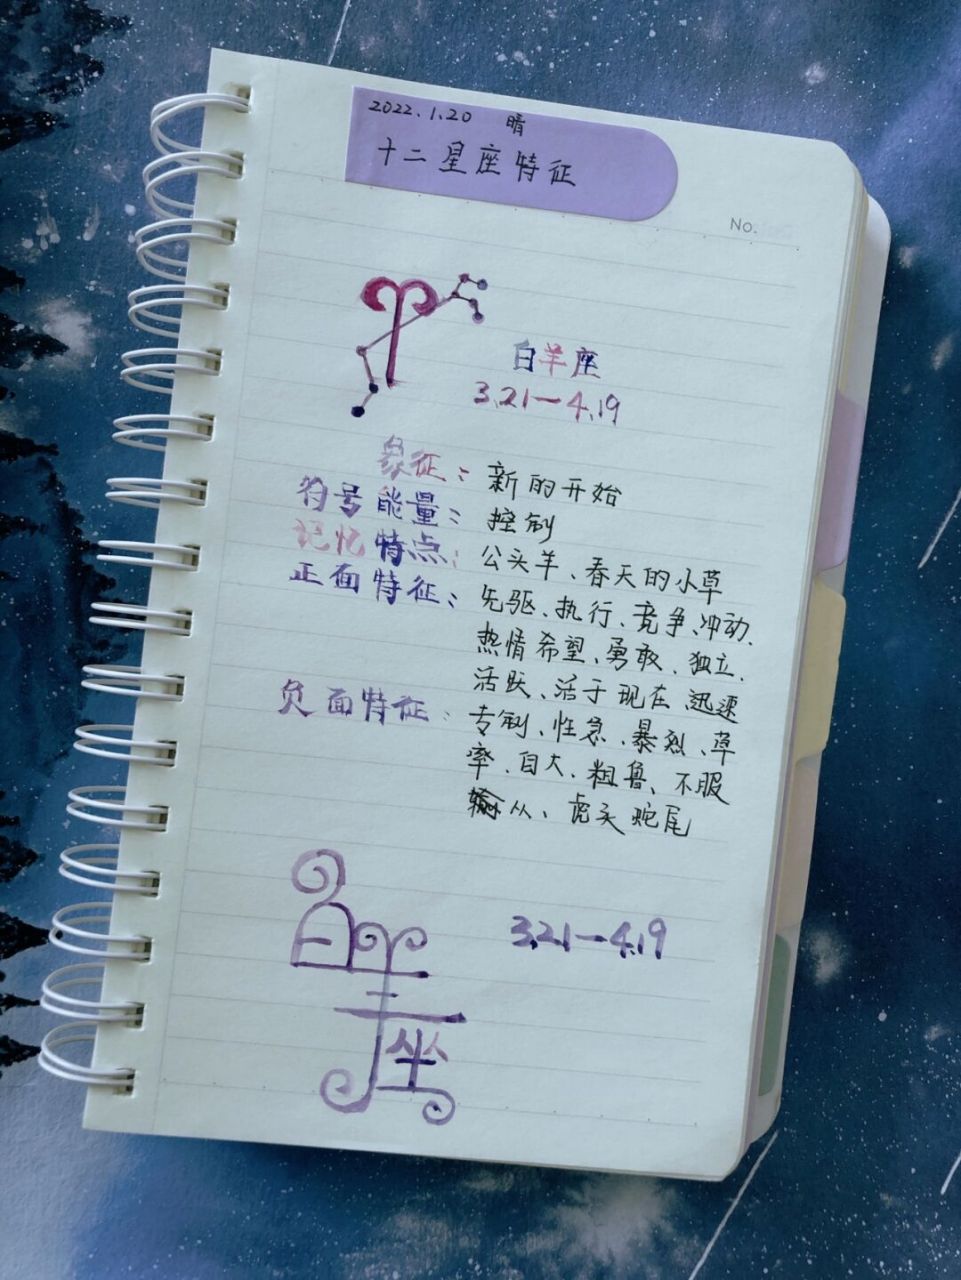 2022.1.20 晴
十二星座特征
No.
白羊座
3.21—4.19
象征：新的开始
符号能量：控制
记忆特点：公头羊、春天的小草
正面特征：先驱、执行、竞争、冲动、
热情希望、勇敢、独立、
活跃、活于现在、迅速
负面特征：专制、性急、暴烈、草
率、自大、粗鲁、不服
从、虎头蛇尾
白羊座
3.21—4.19